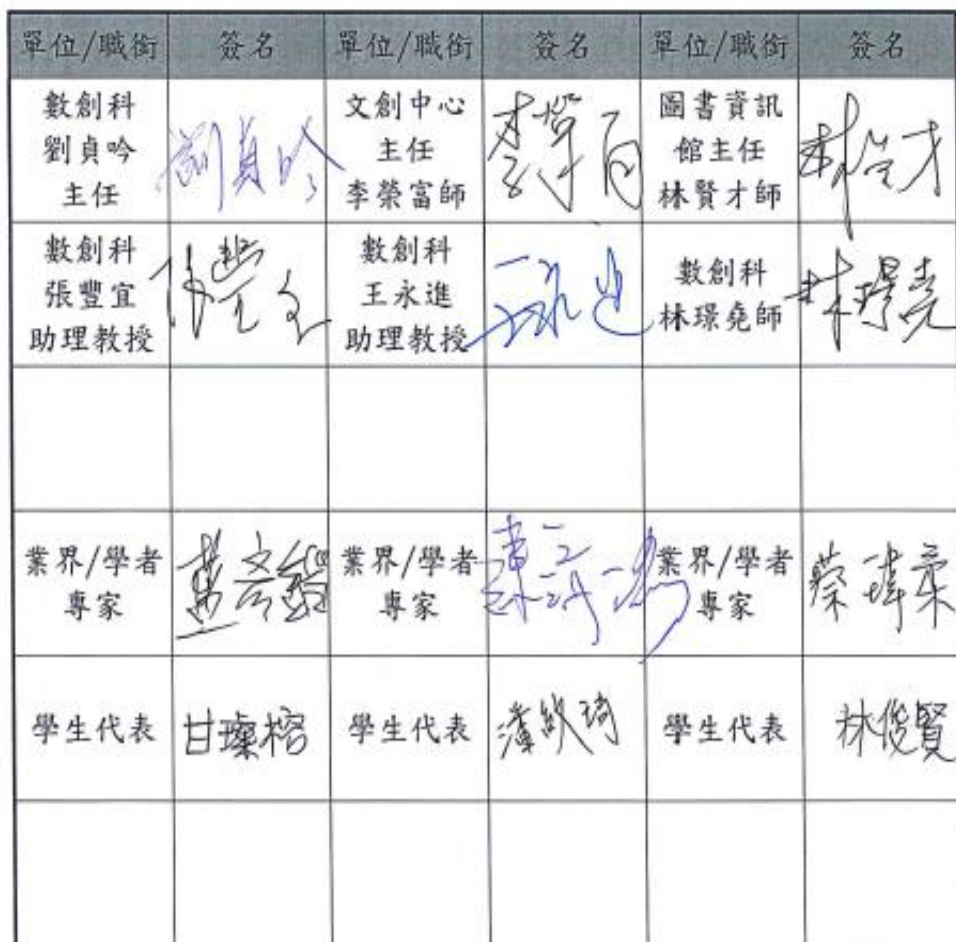 單位/職銜 簽名 單位/職銜 簽名 單位/職銜 簽名
數創科
劉貞吟
主任
劉貞吟
文創中心
主任
李榮富師
圖書資訊
館主任
林賢才師
數創科
張豐宜
助理教授
數創科
王永進
助理教授
王永進
數創科
林璟堯師
林璟堯
業界/學者
專家
業界/學者
專家
業界/學者
專家
蔡瑋柔
學生代表
甘璨榕
學生代表
學生代表
林俊賢